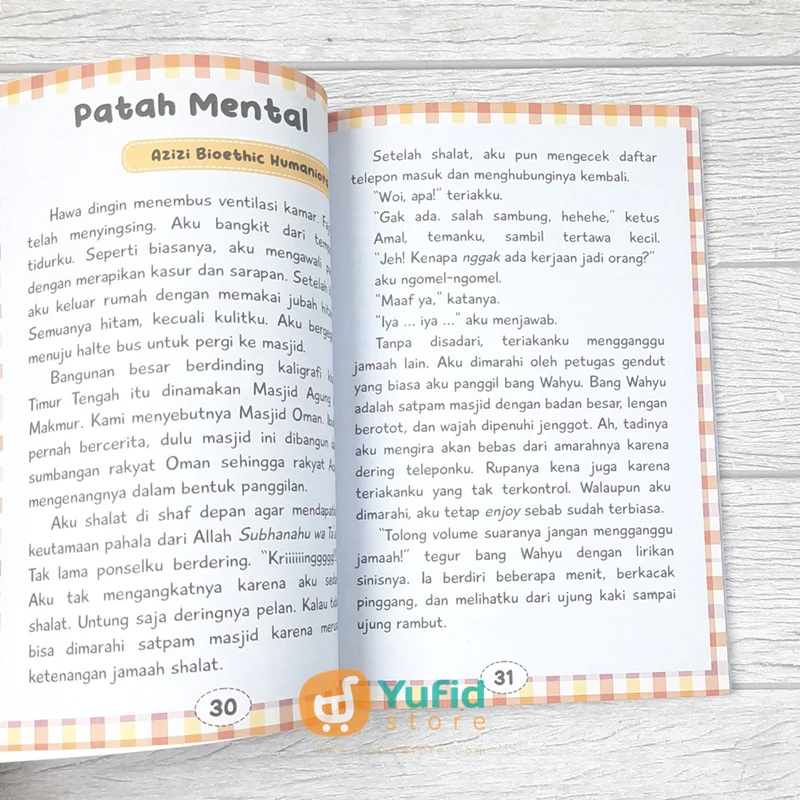 Patah Mental
Azizi Bioethic Humaniora
Hawa dingin menembus ventilasi kamar.
telah menyingsing. Aku bangkit dari
tidurku. Seperti biasanya, aku mengawali
dengan merapikan kasur dan sarapan. Setelah
aku keluar rumah dengan memakai jubah
Semuanya hitam, kecuali kulitku. Aku
menuju halte bus untuk pergi ke masjid.
Bangunan besar berdinding kaligrafi
Timur Tengah itu dinamakan Masjid Agung
Makmur. Kami menyebutnya Masjid Oman.
pernah bercerita, dulu masjid ini dibangun
sumbangan rakyat Oman sehingga rakyat
mengenangnya dalam bentuk panggilan.
Aku shalat di shaf depan agar
keutamaan pahala dari Allah Subhanahu wa
Tak lama ponselku berdering.
Aku tak mengangkatnya karena aku
shalat. Untung saja deringnya pelan. Kalau
bisa dimarahi satpam masjid karena
ketenangan jamaah shalat.
30
Setelah shalat, aku pun mengecek daftar
telepon masuk dan menghubunginya kembali.
"Woi, apa!" teriakku.
"Gak ada. salah sambung, hehehe," ketus
Amal, temanku, sambil tertawa kecil.
"Jeh! Kenapa nggak ada kerjaan jadi orang?"
aku ngomel-ngomel.
"Maaf ya," katanya.
"Iya ... iya ..." aku menjawab.
Tanpa disadari, teriakanku mengganggu
jamaah lain. Aku dimarahi oleh petugas gendut
yang biasa aku panggil bang Wahyu. Bang Wahyu
adalah satpam masjid dengan badan besar, lengan
berotot, dan wajah dipenuhi jenggot. Ah, tadinya
aku mengira akan bebas dari amarahnya karena
dering teleponku. Rupanya kena juga karena
teriakanku yang tak terkontrol. Walaupun aku
dimarahi, aku tetap enjoy sebab sudah terbiasa.
"Tolong volume suaranya jangan mengganggu
jamaah!" tegur bang Wahyu dengan lirikan
sinisnya. Ia berdiri beberapa menit, berkacak
pinggang, dan melihatku dari ujung kaki sampai
ujung rambut.
31
Yufid
store
www.yufidstore.com